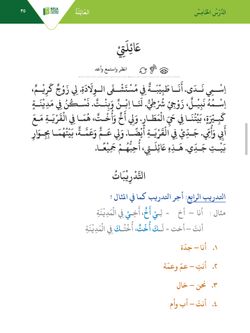 الدَّرْسُ الْخَامِسُ
الْعَائِلَةُ
٣٥
عَائِلَتِيْ
انظر واستمع وأعد
اِسْمِيْ نَدَى، أَنَا طَبِيْبَةٌ فِيْ مُسْتَشْفَى الْوِلَادَةِ، لِيْ زَوْجٌ كَرِيْمٌ،
اِسْمُهُ نَبِيْلٌ، زَوْجِيْ شُرْطِيٌّ، لَنَا اِبْنٌ وَبِنْتٌ، نَسْكُنُ فِيْ مَدِيْنَةٍ
كَبِيْرَةٍ، بَيْتُنَا فِيْ حَيِّ الْمَطَارِ، وَلِيْ أَخٌ وَأُخْتٌ، هُمَا فِي الْقَرْيَةِ مَعَ
أَبِيْ وَأُمِّيْ، جَدِّيْ فِي الْقَرْيَةِ أَيْضًا، وَلِيْ عَمٌّ وَعَمَّةٌ، بَيْتُهُمَا بِجِوَارِ
بَيْتِ جَدِّيْ، هٰذِهِ عَائِلَتِيْ، أُحِبُّهُمْ جَمِيْعًا.
التَّدْرِيْبَاتُ
التدريب الرابع: أجر التدريب كما في المثال :
مثال : أنا – أخ - لِيْ أَخٌ، أَخِيْ فِي الْمَدِيْنَةِ
أنتَ – أخت - لَكَ أُخْتٌ، أُخْتُكَ فِي الْمَدِيْنَةِ
١. أنا – جدّة
٢. أنتِ – عمّ وعمّة
٣. نحن – خال
٤. أنتَ – أب وأم